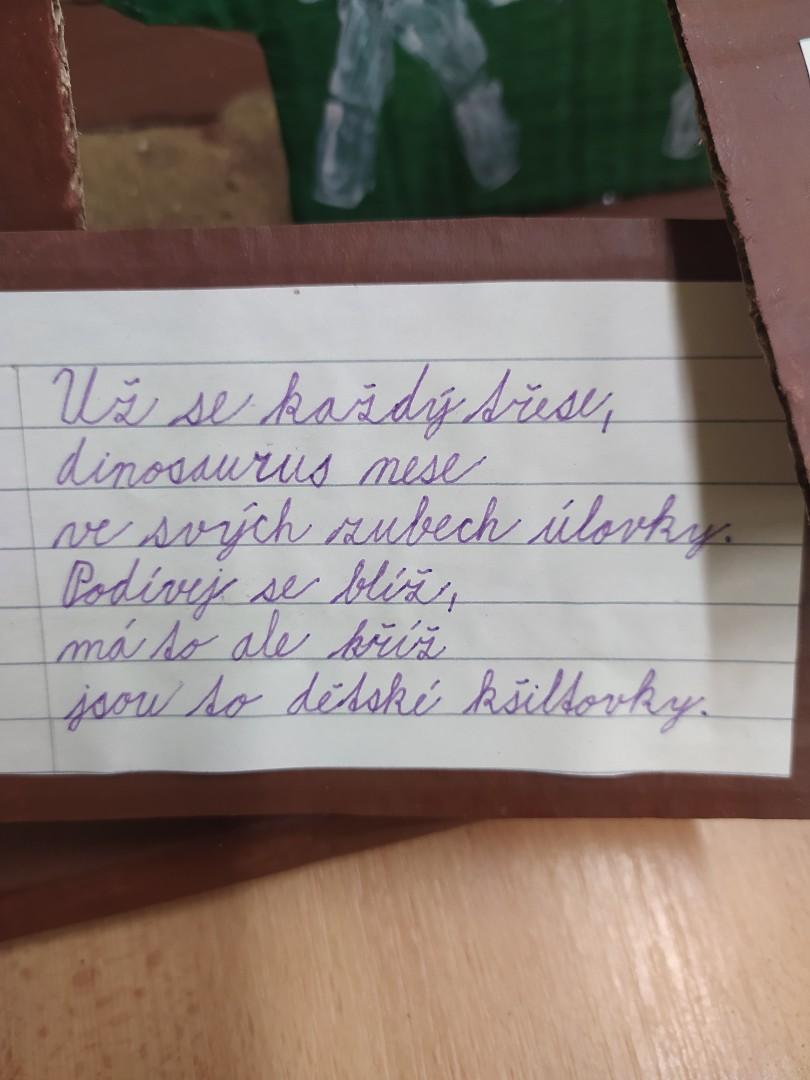 Už se každý třese,
dinosaurus nese
ve svých zubech úlovky.
Podívej se blíž,
má to ale kříž
jsou to dětské kšiltovky.